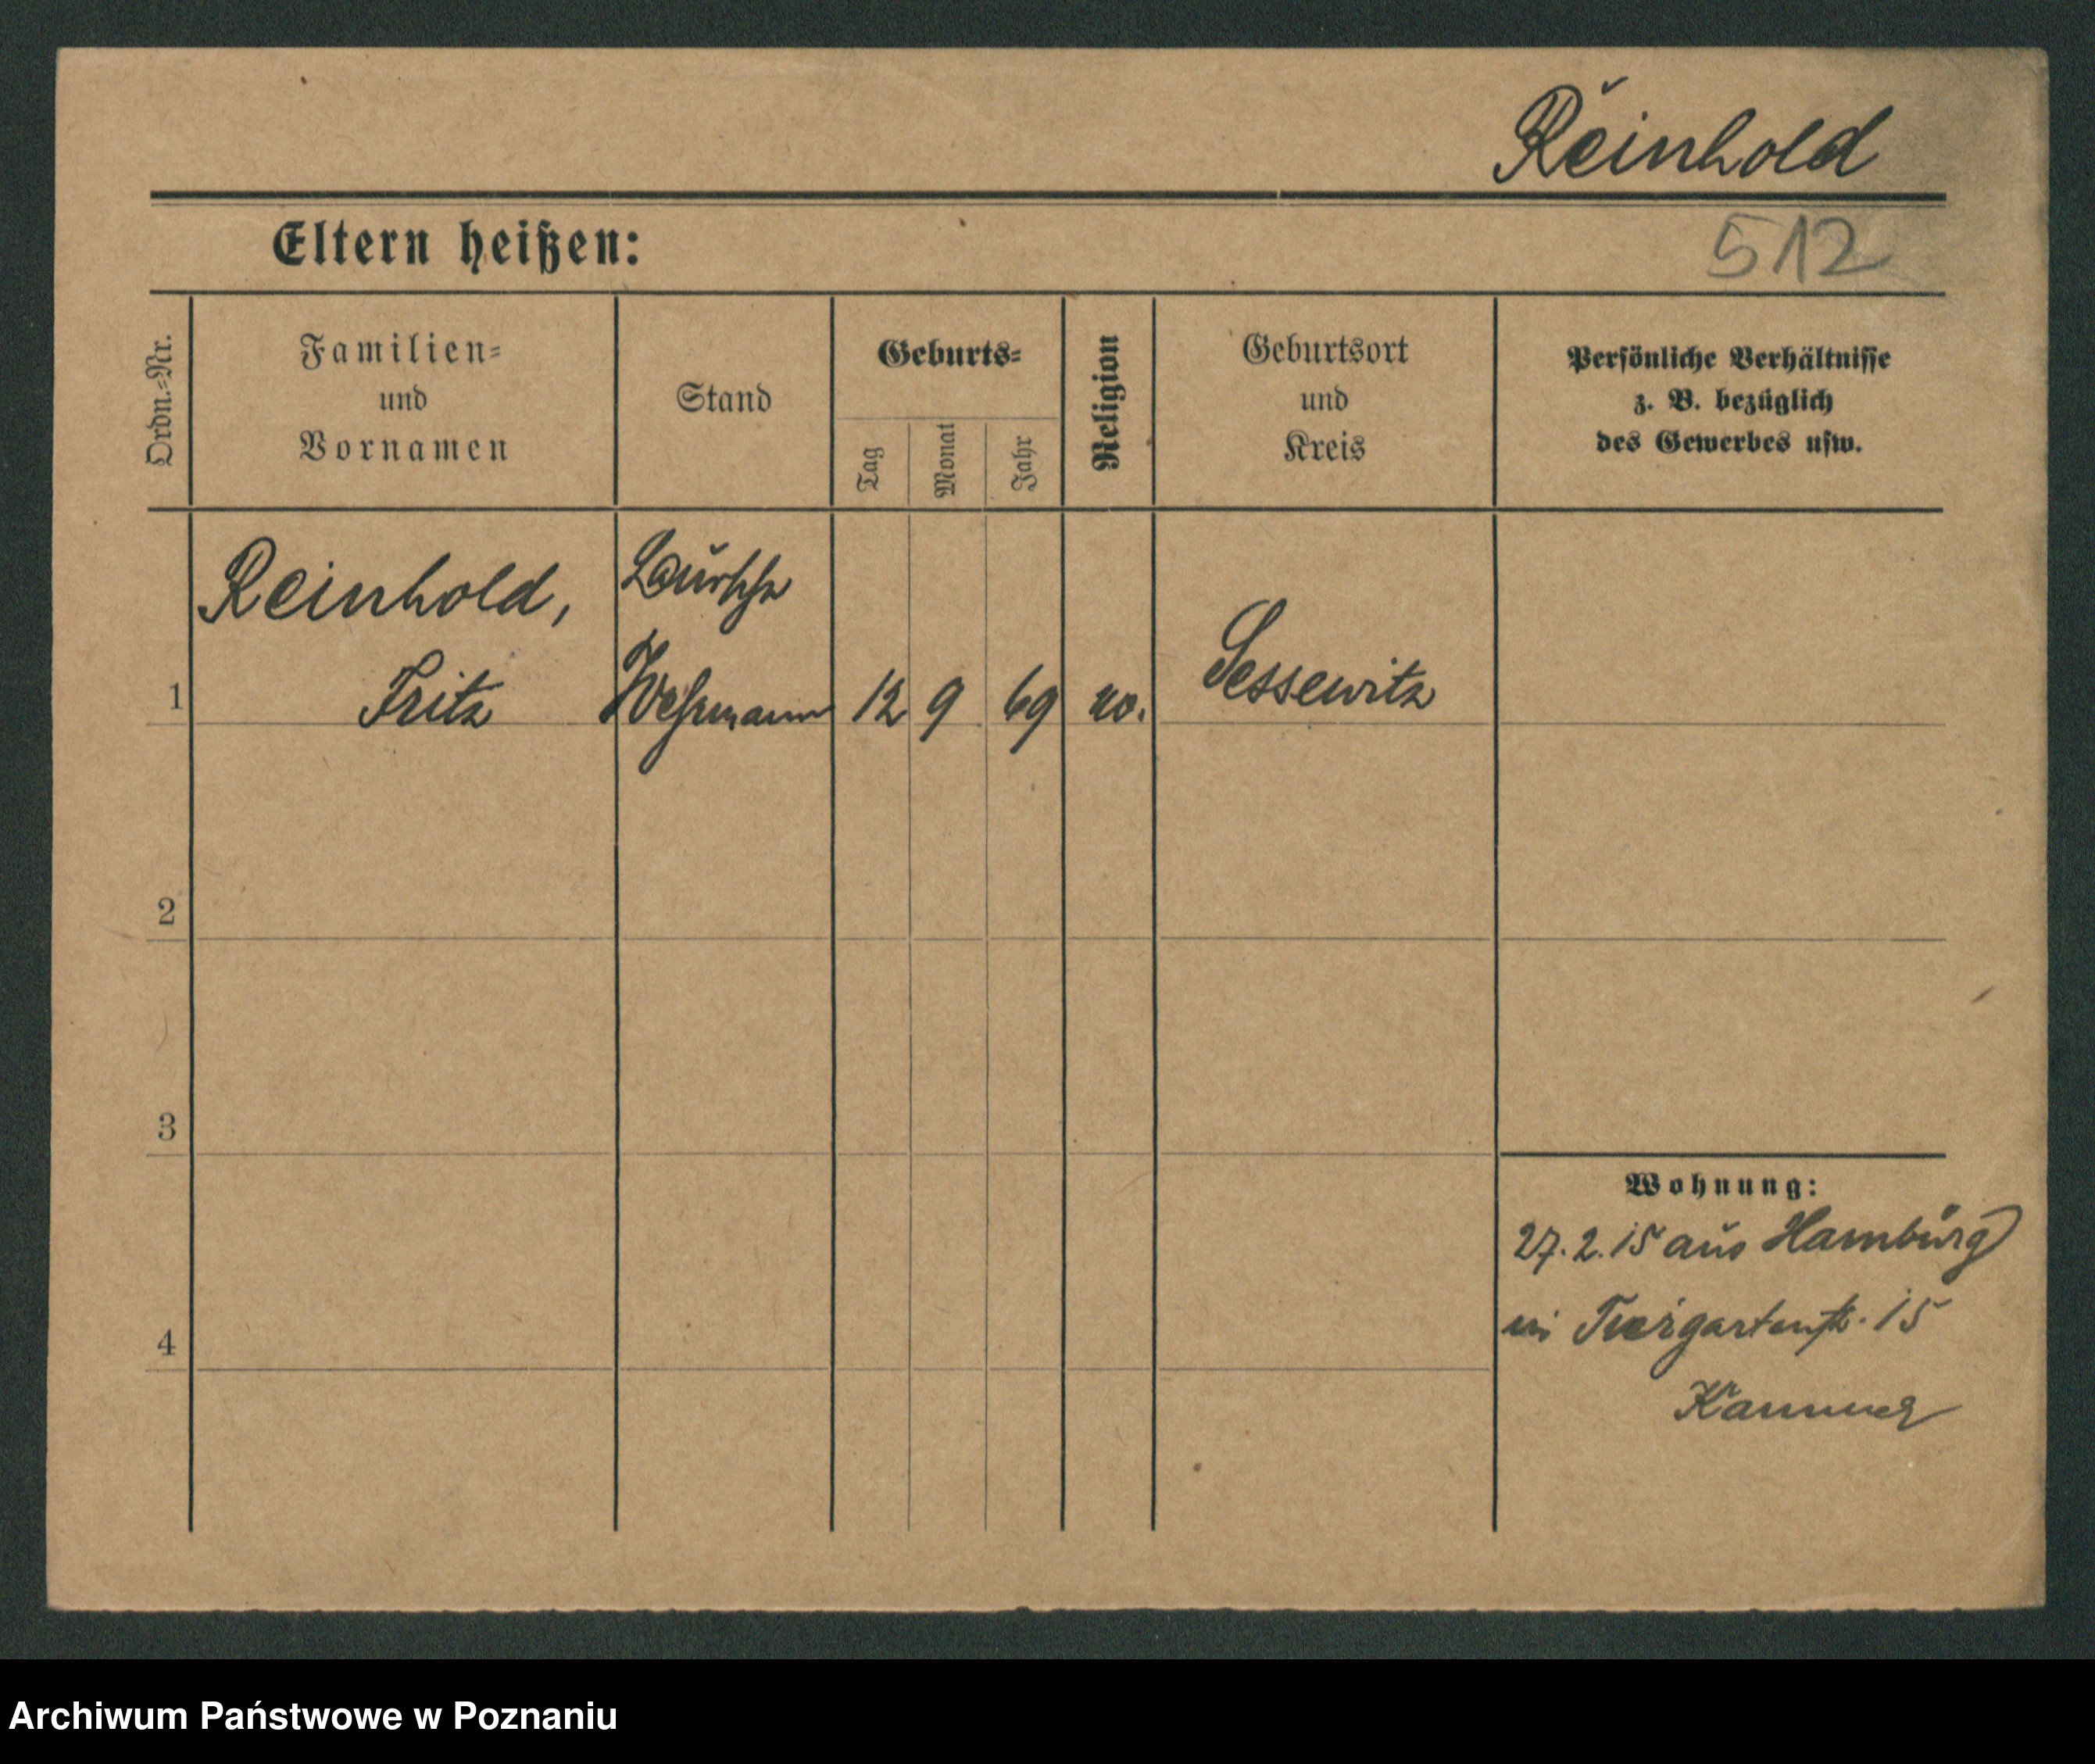 Reinhold
Eltern heißen:
512
Ordn.=Nr.
Familien=
und
Vornamen
Stand
Geburts=
Tag
Monat
Jahr
Religion
Geburtsort
und
Kreis
Persönliche Verhältnisse
z. B. bezüglich
des Gewerbes usw.
Reinhold,
1
Fritz
Wehrmann
12
9
69
Sessewitz
2
3
4
Wohnung:
27.2.15 aus Hamburg
Tiergartenstr. 15
Archiwum Państwowe w Poznaniu